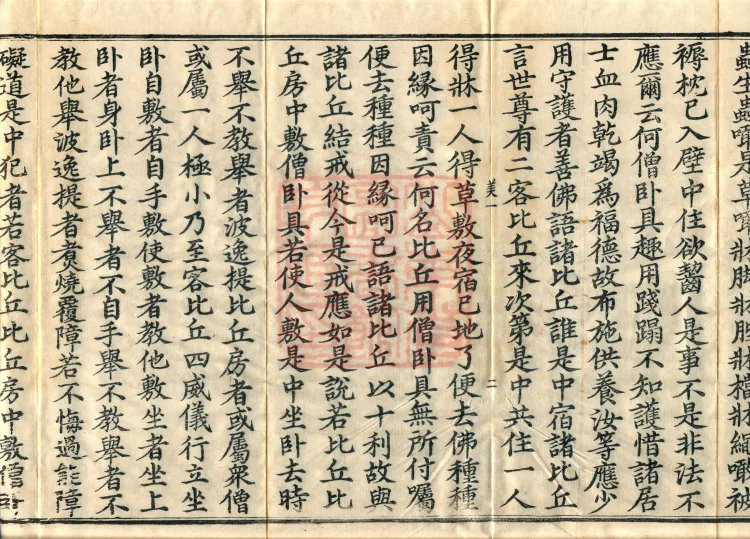 蟲生蟲噉是草噉牀脚牀牀牀繩噉被
褥枕已入壁中住欲齧人是事不是非法不
應爾云何僧卧具趣用踐蹋不知護惜諸居
士血肉乾竭爲福德故布施供養汝等應少
用守護者善佛語諸比丘誰是中宿諸比丘
言世尊有二客比丘來次第是中共住一人
美一 二
得牀一人得草敷夜宿已地了便去佛種種
因緣呵責云何名比丘用僧卧具無所付囑
便去種種因緣呵已語諸比丘以十利故與
諸比丘結戒從今是戒應如是說若比丘比
丘房中敷僧卧具若使人敷是中坐卧去時
不舉不教舉者波逸提比丘房者或屬衆僧
或屬一人極小乃至客比丘四威儀行立坐
卧自敷者自手敷使敷者教他敷坐者坐上
卧者身卧上不舉者不自手舉不教舉者不
教他舉波逸提者煑燒覆障若不悔過能障
礙道是中犯者若客比丘比丘房中敷僧卧